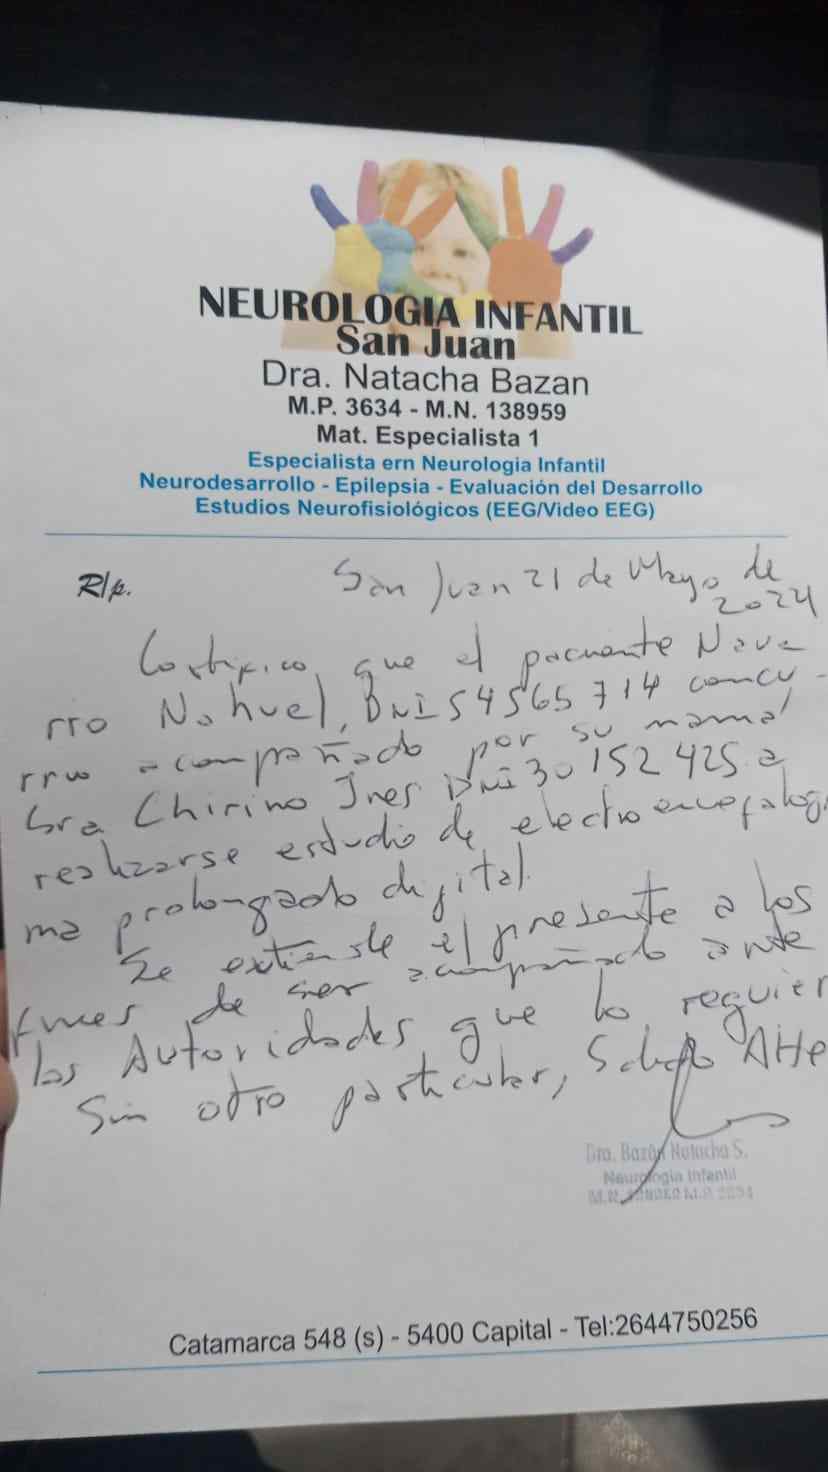 NEUROLOGIA INFANTIL
San Juan
Dra. Natacha Bazan
M.P. 3634 - M.N. 138959
Mat. Especialista 1
Especialista ern Neurologia Infantil
Neurodesarrollo - Epilepsia - Evaluación del Desarrollo
Estudios Neurofisiológicos (EEG/Video EEG)
R/p.
San Juan 21 de Mayo de
2024
Certifico que el paciente Nava
rro Nahuel, DNI 54565714 concu
rrio acompañado por su mamá
Sra Chirino Ines DNI 30152425 a
realizarse estudio de electroencefalogra
ma prolongado digital.
Se extiende el presente a los
fines de ser acompañado ante
las Autoridades que lo requier
Sin otro particular, Saludo Atte
Dra. Bazán Natacha S.
Neurologia Infantil
Catamarca 548 (s) - 5400 Capital - Tel:2644750256